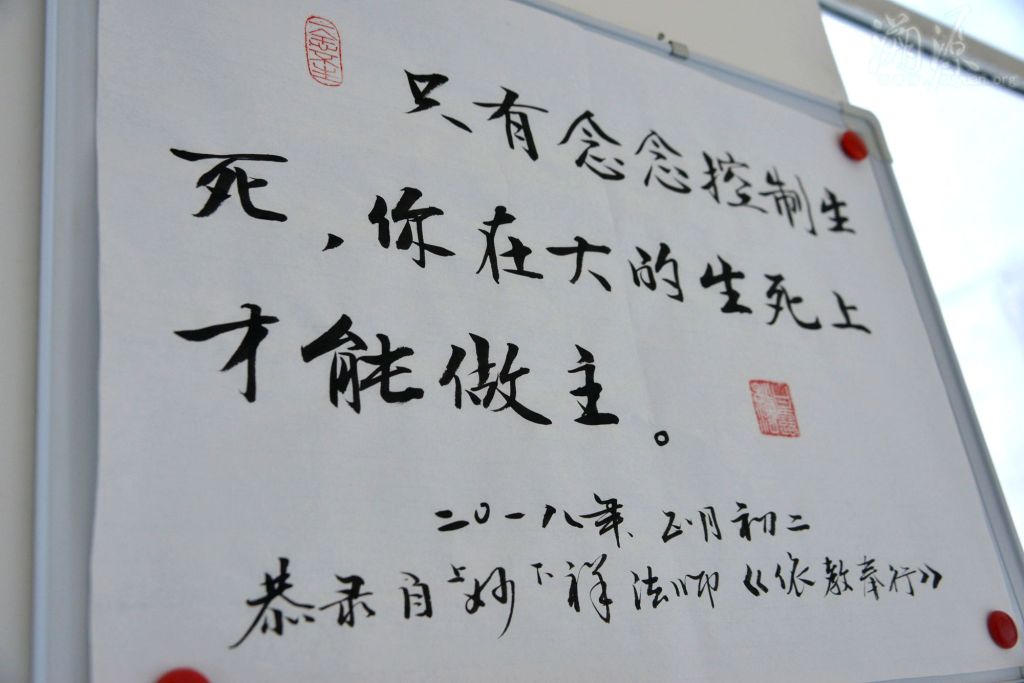 只有念念控制生
死，你在大的生死上
才能做主。
二〇一八年、正月初二
恭录自上妙下祥法师《依教奉行》